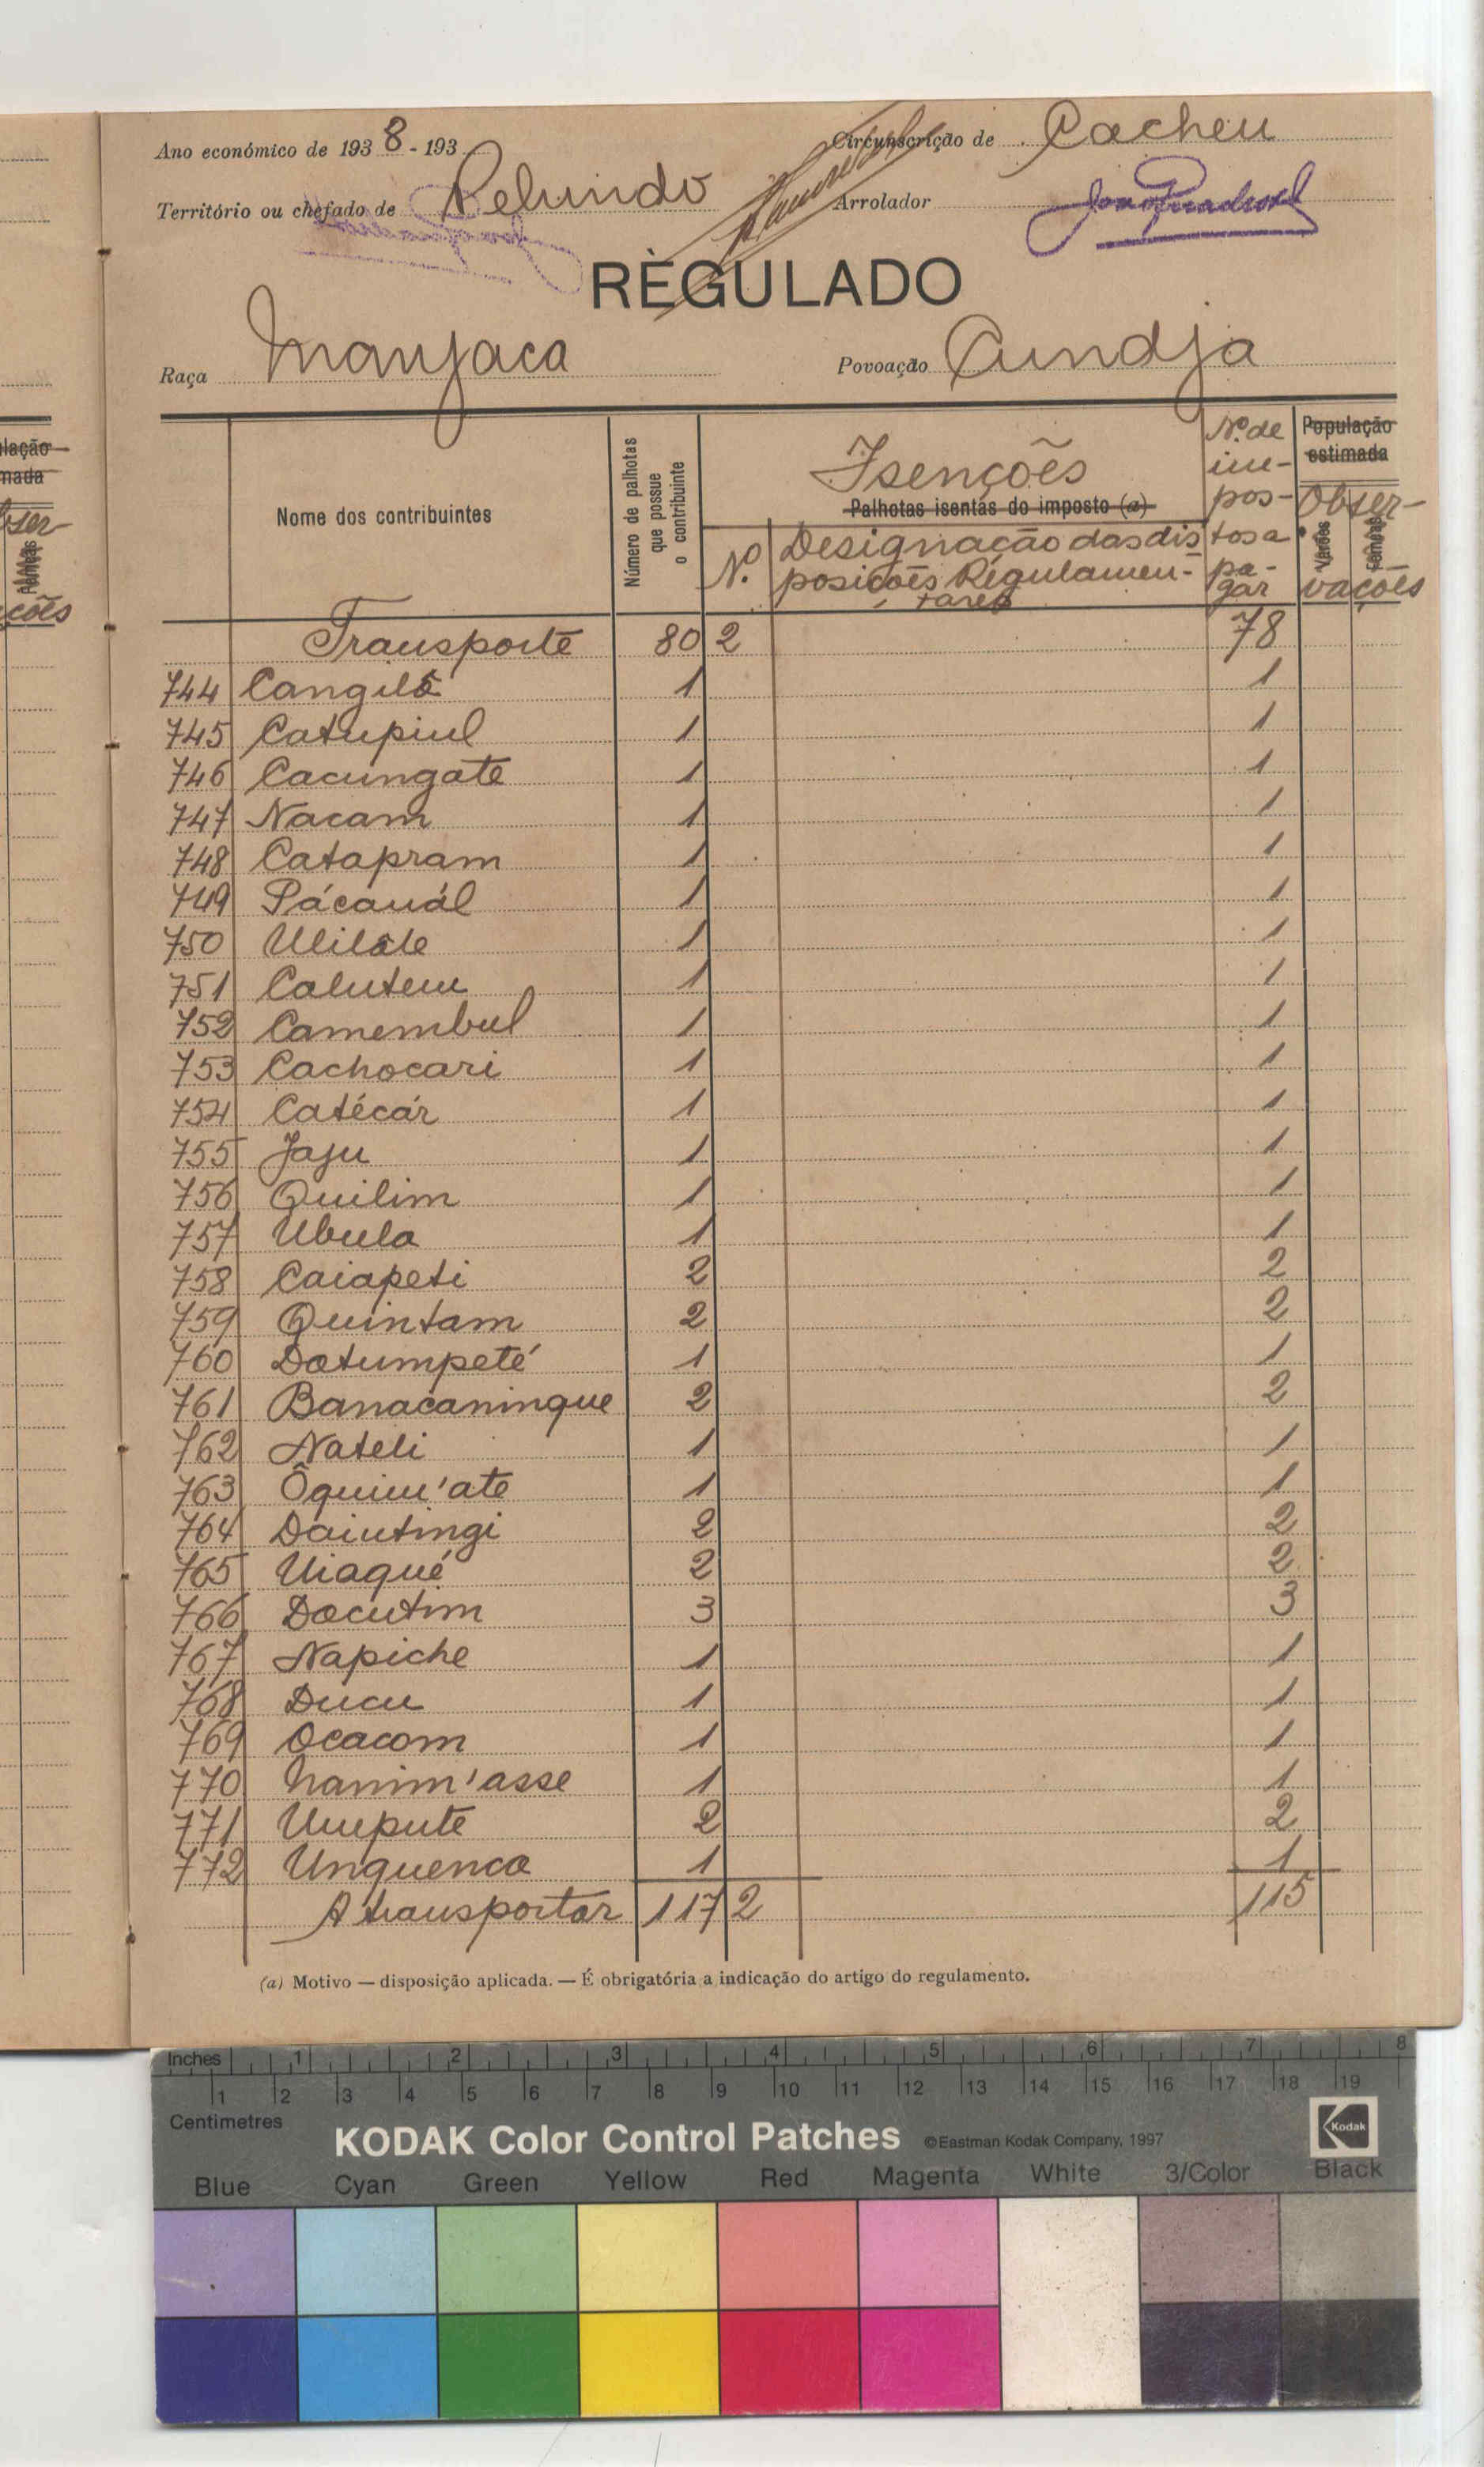 Ano económico de 1938-193
Circunscrição de Cacheu
Território ou chefado de Pelundo
Arrolador
REGULADO
Raça Manjaca
Povoação Cundja
Nome dos contribuintes
Número de palhotas que possue o contribuinte
Isenções
Palhotas isentas do imposto (a)
N.º
Designação das disposições Regulamentares
N.º de impostos a pagar
População estimada
Observações
Varões
Fêmeas
Transporte 80 2 78
744 Cangilô 1 1
745 Catupiul 1 1
746 Cacungate 1 1
747 Nacam 1 1
748 Catapram 1 1
749 Pácauál 1 1
750 Uilále 1 1
751 Calutem 1 1
752 Camembul 1 1
753 Cachocari 1 1
754 Catécár 1 1
755 Jaju 1 1
756 Quilim 1 1
757 Ubula 1 1
758 Caiapeti 2 2
759 Quintam 2 2
760 Datumpeté 1 1
761 Banacaninque 2 2
762 Nateli 1 1
763 Ôquim'ate 1 1
764 Daintingi 2 2
765 Uiaqué 2 2
766 Dacutim 3 3
767 Napiche 1 1
768 Ducu 1 1
769 Ocacom 1 1
770 Nanim'asse 1 1
771 Umpute 2 2
772 Unquenca 1 1
A transportar 117 2 115
(a) Motivo — disposição aplicada. — É obrigatória a indicação do artigo do regulamento.
Inches 1 2 3 4 5 6 7 8
1 2 3 4 5 6 7 8 9 10 11 12 13 14 15 16 17 18 19
Centimetres
KODAK Color Control Patches ©Eastman Kodak Company, 1997 Kodak
Blue Cyan Green Yellow Red Magenta White 3/Color Black